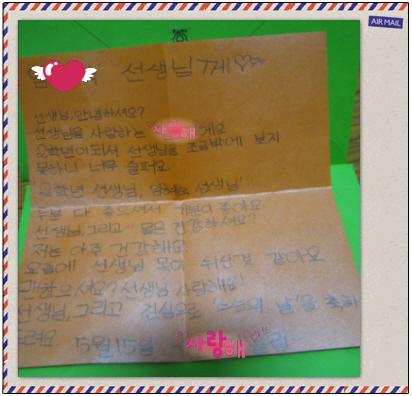 AIR MAIL
선생님께♡♡
선생님, 안녕하셔요?
선생님을 사랑하는 사랑해에요
2학년이 되서 선생님을 조금밖에 보지
못하니 너무 슬퍼요.
'2학년 선생님, 선생님'
두분 다 좋으셔서 기분이 좋아요
선생님, 그리고 몸은 건강하셔요?
저는 아주 건강해요.
오늘에 선생님 목이 쉬신것 같아요
괜찮으셔요? 선생님 사랑해요!
선생님, 그리고 진심으로 '스승의 날'을 축하
드려요
5월 15일 사랑해